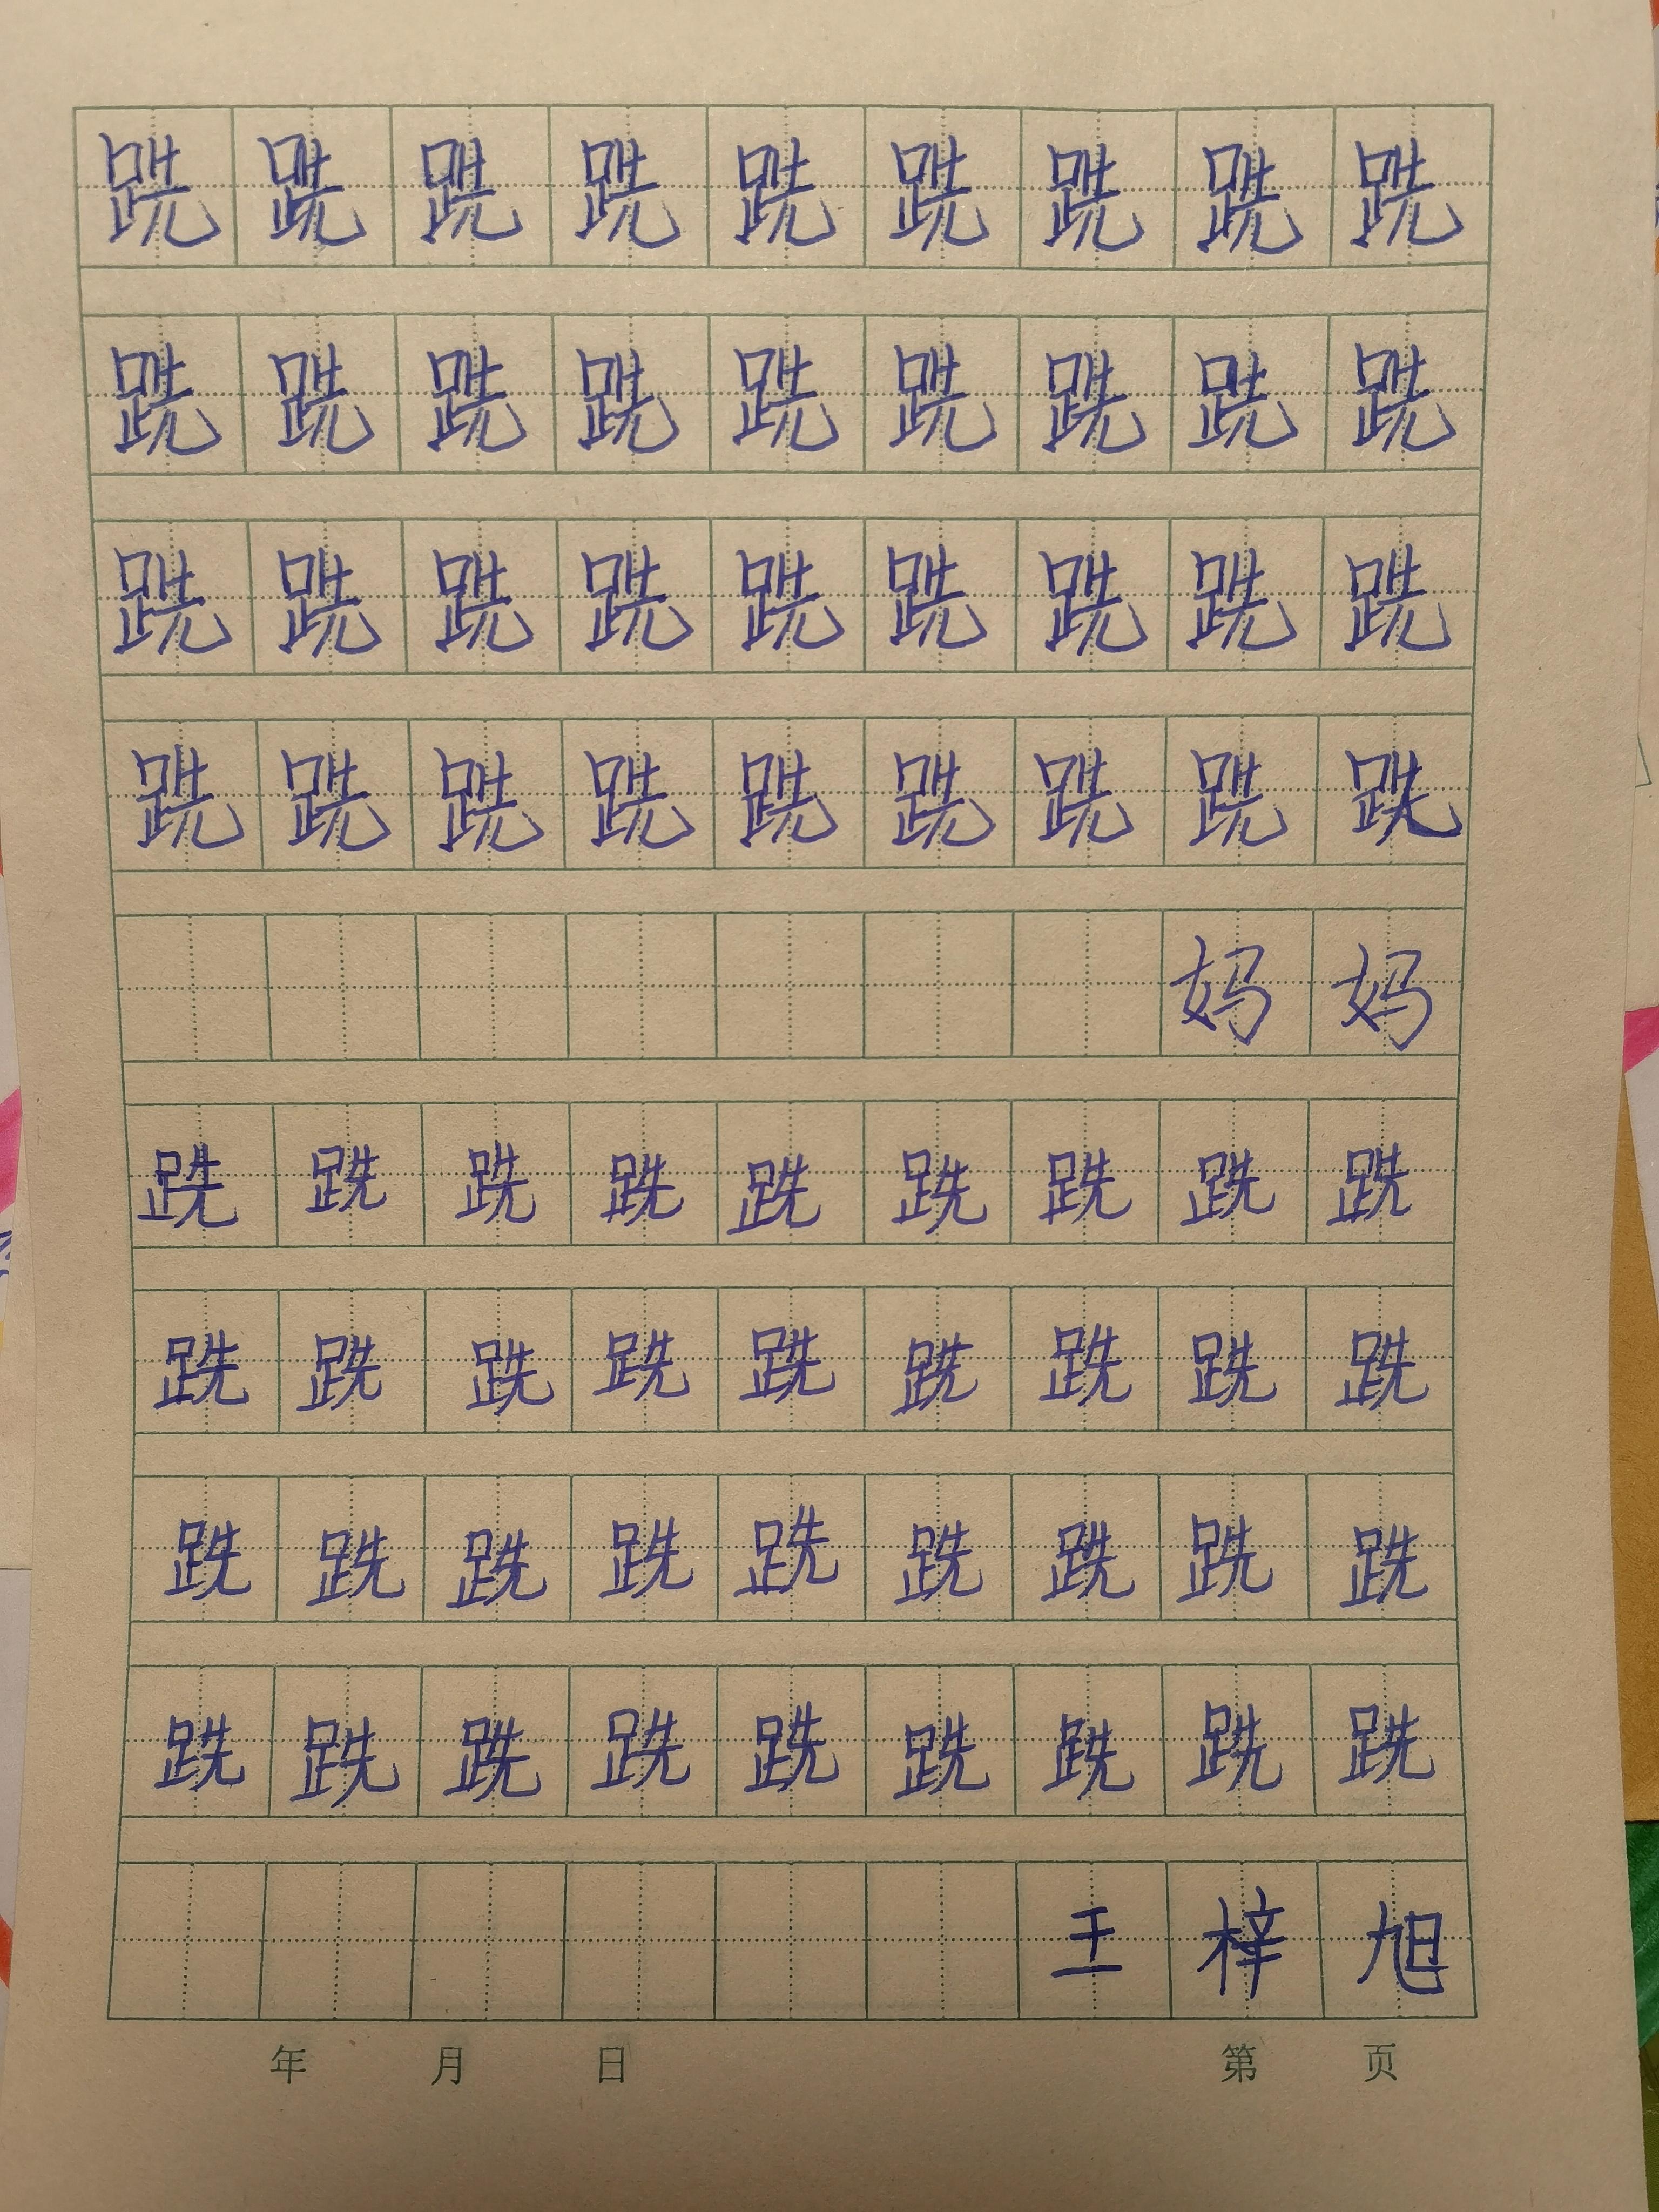 跣跣跣跣跣跣跣跣跣
跣跣跣跣跣跣跣跣跣
跣跣跣跣跣跣跣跣跣
跣跣跣跣跣跣跣跣跣
妈妈
跣跣跣跣跣跣跣跣跣
跣跣跣跣跣跣跣跣跣
跣跣跣跣跣跣跣跣跣
跣跣跣跣跣跣跣跣跣
王梓旭
年 月 日 第 页